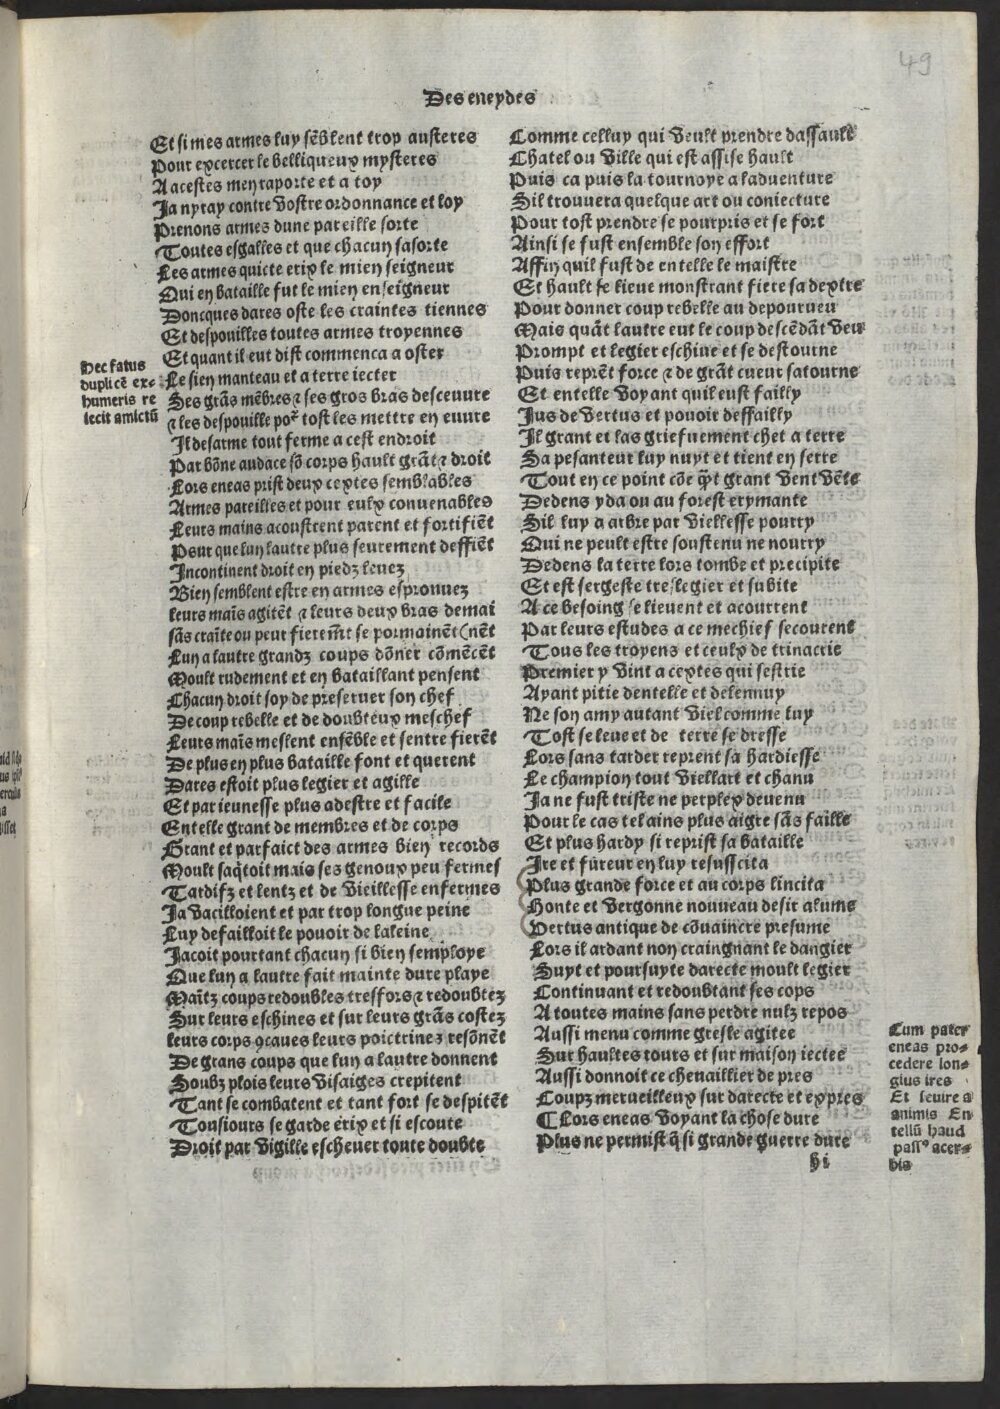 49
Des eneydes
Et si mes armes luy sẽblent trop austeres
Pour excercer le belliqueux mysteres
A acestes men raporte et a toy
Ja nyray contre vostre ordonnance et loy
Prenons armes dune pareille sorte
Toutes esgalles et que chacun sasorte
Les armes quicte erix le mien seigneur
Qui en bataille fut le mien enseigneur
Doncques dares oste les craintes tiennes
Et despouilles toutes armes troyennes
Et quant il eut dist commenca a oster
Le sien manteau et a terre iecter
Ses grãs mẽbres ⁊ ses gros bras desceuure
⁊ les despouille por̃ tost les mettre en euure
Il desarme tout ferme a cest endroit
Par bõne audace sõ corps hault grãt ⁊ droit
Lors eneas prist deux cextes semblables
Armes pareilles et pour eulx conuenables
Leurs mains acoustrent parent et fortifiẽt
Pour que lun lautre plus seurement deffiẽt
Incontinent droit en piedz leuez
Bien semblent estre en armes esprouuez
leurs maĩs agitẽt ⁊ leurs deux bras demai
sãs craĩte ou peur fierem̃t se pormainẽt (nẽt
Lun a lautre grandz coups dõner cõmẽcẽt
Moult rudement et en bataillant pensent
Chacun droit soy de preseruer son chef
De coup rebelle et de doubteux meschef
Leurs maĩs meslent ensẽble et sentre fierẽt
De plus en plus bataille font et querent
Dares estoit plus legier et agille
Et par ieunesse plus adestre et facile
Entelle grant de membres et de corps
Grant et parfaict des armes bien records
Moult saq̃toit mais ses genoux peu fermes
Tardifz et lentz et de vieillesse enfermes
Ja vacilloient et par trop longue peine
Luy defailloit le pouoir de laleine
Jacoit pourtant chacun si bien semploye
Que lun a lautre fait mainte dure playe
Maĩtz coups redoubles tresfors ⁊ redoubtez
Sur leurs eschines et sur leurs grãs costez
leurs corps ꝯcaues leurs poictrinez resõnẽt
De grans coups que lun a lautre donnent
Soubz plois leurs visaiges crepitent
Tant se combatent et tant fort se despitẽt
Tousiours se garde erix et si escoute
Droit par vigille escheuer toute doubte
Hec fatus
duplicẽ ex-
humeris re
iecit amictũ
Comme celluy qui veult prendre dassault
Chatel ou ville qui est assise hault
Puis ca puis la tournoye a laduenture
Sil trouuera quelque art ou coniecture
Pour tost prendre se pourpris et se fort
Ainsi se fust ensemble son effort
Affin quil fust de entelle le maistre
Et hault se lieue monstrant fiere sa dextre
Pour donner coup rebelle au depourueu
Mais quãt lautre eut le coup descẽdãt veu
Prompt et legier eschiue et se destourne
Puis reprẽt force ⁊ de grãt cueur satourne
Et entelle voyant quil eust failly
Jus de vertus et pouoir deffailly
Il grant et las griefuement chet a terre
Sa pesanteur luy nuyt et tient en serre
Tout en ce point cõe q̃t grant vent vẽte
Dedens yda ou au forest erymante
Sil luy a arbre par viellesse pourry
Qui ne peult estre soustenu ne nourry
Dedens la terre lors tombe et precipite
Et est sergeste treslegier et subite
A ce besoing se lieuent et acourrent
Par leurs estudes a ce mechief secourent
Tous les troyens et ceulx de trinacrie
Premier y vint acextes qui sestrie
Ayant pitie dentelle et delennuy
Ne son amy autant viel comme luy
Tost se leue et de terre se dresse
Lors sans tarder reprent sa hardiesse
Le champion tout viellart et chanu
Ja ne fust triste ne perplex deuenu
Pour le cas tel ains plus aigre sãs faille
Et plus hardy si reprist sa bataille
Ire et fureur en luy resuscita
Plus grande force et au corps lincita
Honte et vergonne nouueau desir alume
Vertus antique de cõuaincre presume
Lors il ardant non craingnant le dangier
Suyt et poursuyte darecte moult legier
Continuant et redoubtant ses cops
A toutes mains sans perdre nulz repos
Aussi menu comme gresle agitee
Sur haultes tours et sur maison iectee
Aussi donnoit ce cheuaillier de pres
Coupz merueilleux sur darecte et expres
¶ Lors eneas voyant la chose dure
Plus ne permist q̃ si grande guerre dure
Cum pater
eneas pro-
cedere lon-
gius ires
Et seuire a
animis En
tellũ haud
pass9 acer-
bis
hi